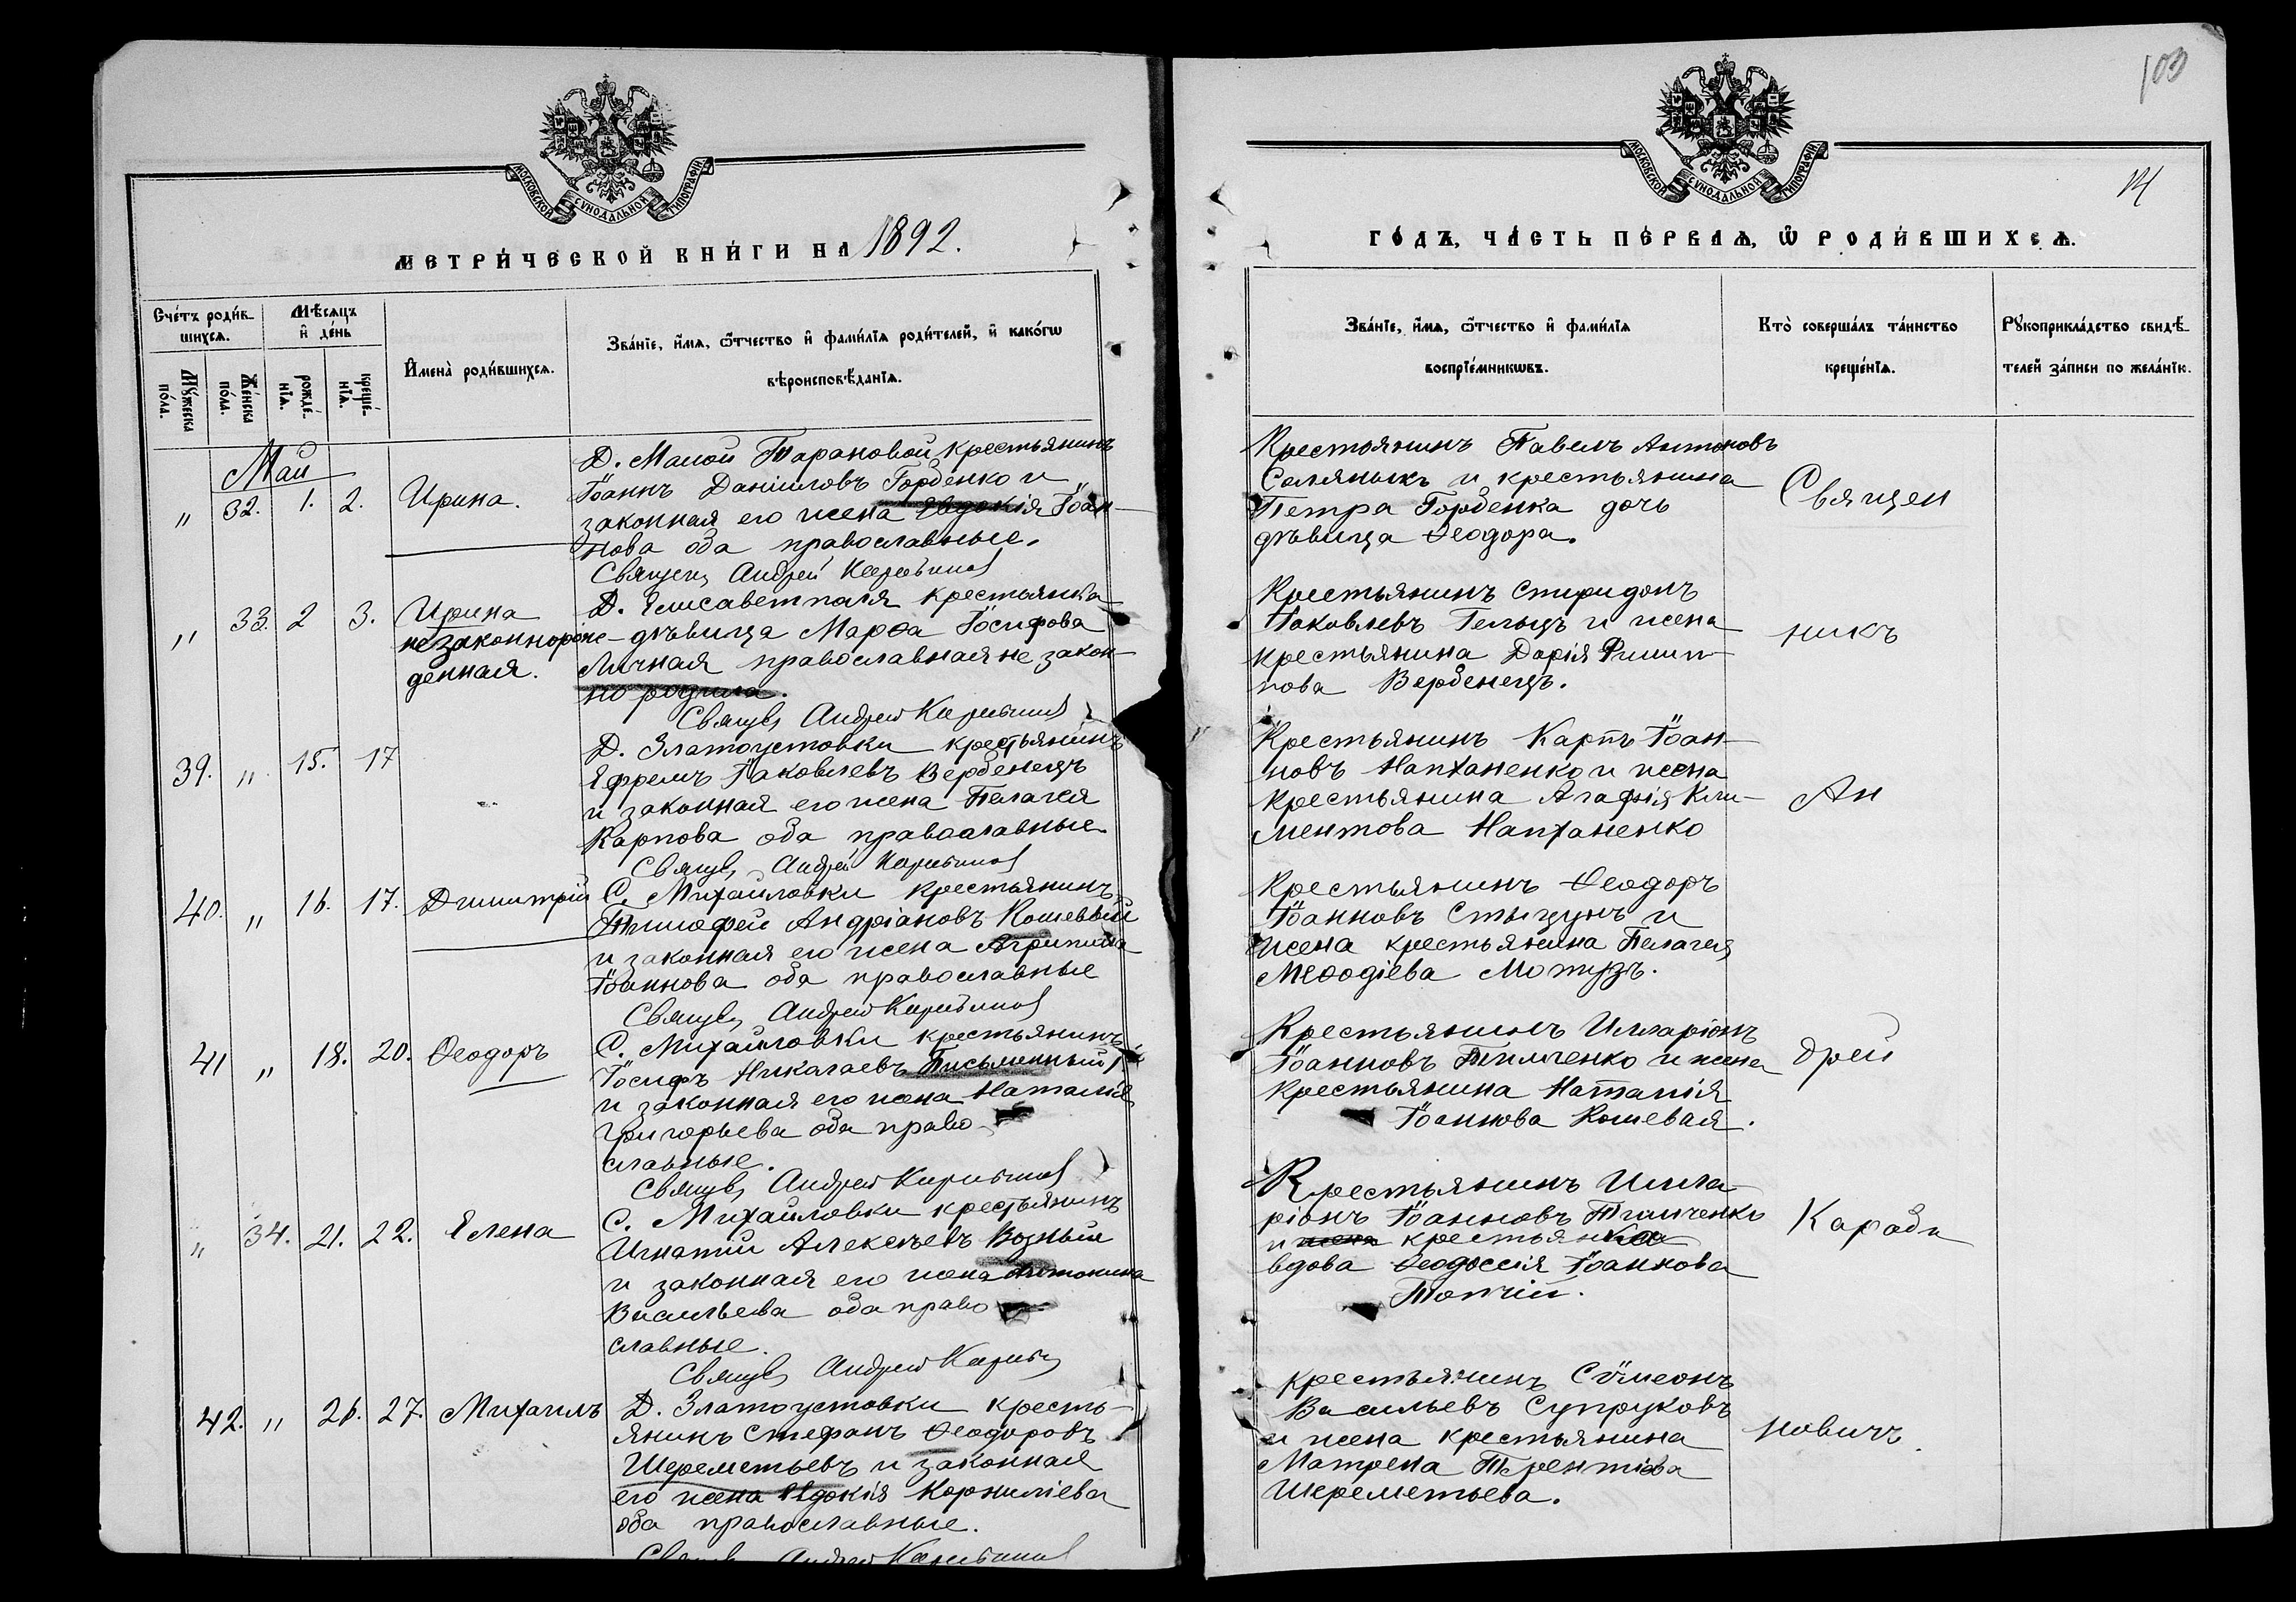 МОСКОВСКОЙ СѴНОДАЛЬНОЙ ТИПОГРАФІИ
МЕТРИ́ЧЕСКОЙ КНИ́ГИ НА 1892.
Сче́тъ роди́в-
шихсѧ.
Мѣ́сѧцъ
и҆ де́нь
Мꙋ́жеска
по́ла.
Же́нска
по́ла.
рожде́-
нїѧ.
креще́-
нїѧ.
И҆мена̀ роди́вшихсѧ.
Зва́нїе, и҆́мѧ, ѻ҆́тчество и҆ фами́лїѧ роди́телей, и҆ како́гѡ
вѣроисповѣ́данїѧ.
Май
" 32. 1. 2. Ирина.
Д. Малой Тарановой крестьянинъ
Іоаннъ Даніиловъ Горбенко и
законная его жена Евдокія Іоан-
нова оба православные.
Священ Андрей
" 33. 2 3. Ирина
незаконнорож-
денная.
Д. Елисаветполя крестьянка
дѣвица Марѳа Іосифова
Личная православная не закон-
но родила.
Священ Андрей
39. " 15. 17
Д. Златоустовки крестьянинъ
Ефремъ Іаковлевъ Вербенецъ
и законная его жена Пелагея
Карпова оба православные.
Священ Андрей
40. " 16. 17. Димитрій
С. Михайловки крестьянинъ
Тимофей Андріановъ Кошевый
и законная его жена Агрипина
Іоаннова оба православные
Священ Андрей
41 " 18. 20. Ѳеодоръ
С. Михайловки крестьянинъ
Іосифъ Николаевъ Письменный
и законная его жена Наталія
Григорьева оба право-
славные.
Священ Андрей
" 34. 21. 22. Елена
С. Михайловки крестьянинъ
Игнатій Алексѣевъ Возный
и законная его жена Антонина
Васильева оба право
славные.
Священ Андрей
42. " 26. 27. Михаилъ
Д. Златоустовки кресть-
янинъ Стефанъ Ѳеодоровъ
Шереметьевъ и законная
его жена Евдокія Корниліева
оба православные.
Священ Андрей
100
14
МОСКОВСКОЙ СѴНОДАЛЬНОЙ ТИПОГРАФІИ
ГО́ДЪ, ЧА́СТЬ ПЕ́РВАѦ, Ѽ РОДИ́ВШИХСѦ.
Зва́нїе, и҆́мѧ, ѻ҆́тчество и҆ фами́лїѧ
воспрїе́мникѡвъ.
Кто̀ соверша́лъ та́инство
креще́нїѧ.
Рꙋкоприкла́дство свидѣ́-
телей за́писи по жела́нїю.
Крестьянинъ Павелъ Антоновъ
и крестьянина
Петра Горбенка дочь
дѣвица Ѳеодора.
Священ
Крестьянинъ Спиридонъ
Іаковлевъ и жена
крестьянина Дарія Филип-
пова Вербенецъ.
никъ
Крестьянинъ Карпъ Іоан-
новъ Напханенко и жена
крестьянина Агафія Кли-
ментова Напханенко
Ан
Крестьянинъ Ѳеодоръ
Іоанновъ Стыгунъ и
жена крестьянина Пелагея
Меѳодіева Мотузъ.
Крестьянинъ Илларіонъ
Іоанновъ Тимченко и жена
крестьянина Наталія
Іоаннова Кошевая.
дрей
Крестьянинъ Илла-
ріонъ Іоанновъ Тимченко
и жена крестьянка
вдова Ѳеодосія Іоаннова
Топчій.
Караби
крестьянинъ Сѵмеонъ
Васильевъ Супруковъ
и жена крестьянина
Матрена Терентіева
Шереметьева.
новичъ